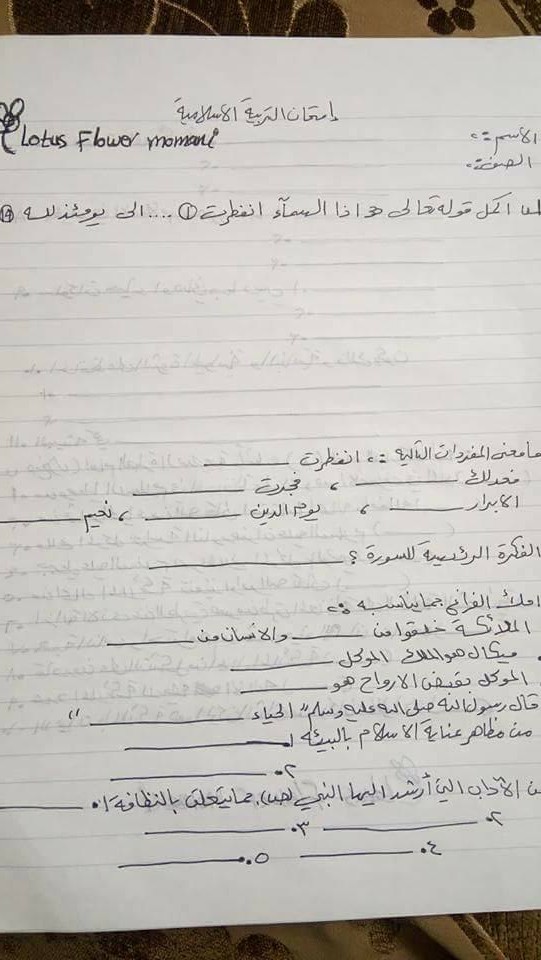 امتحان التربية الاسلامية
Lotus Flower momani
الاسم :
الصف :
اكمل قوله تعالى اذا السمآء انفطرت ١ .... الى يومئذ لله
ما معنى المفردات التالية : انفطرت ______
فعدلك ______ ، فجرت ______
الابرار ______ ، يوم الدين ______ ، نعيم ______
الفكرة الرئيسية للسورة ؟ ______
املأ الفراغ بما يناسبه :
الملائكة خلقوا من ______ والانسان من ______
ميكال هو الملاك الموكل ______
الموكل بقبض الارواح هو ______
قال رسول الله صلى الله عليه وسلم " الحياء ______ "
من مظاهر عناية الاسلام بالبيئه ١. ______
٢. ______
من الآداب التي أرشد اليها النبي (ص) بما يتعلق بالنظافة ١. ______
٢. ______ ٣. ______
٤. ______ ٥. ______